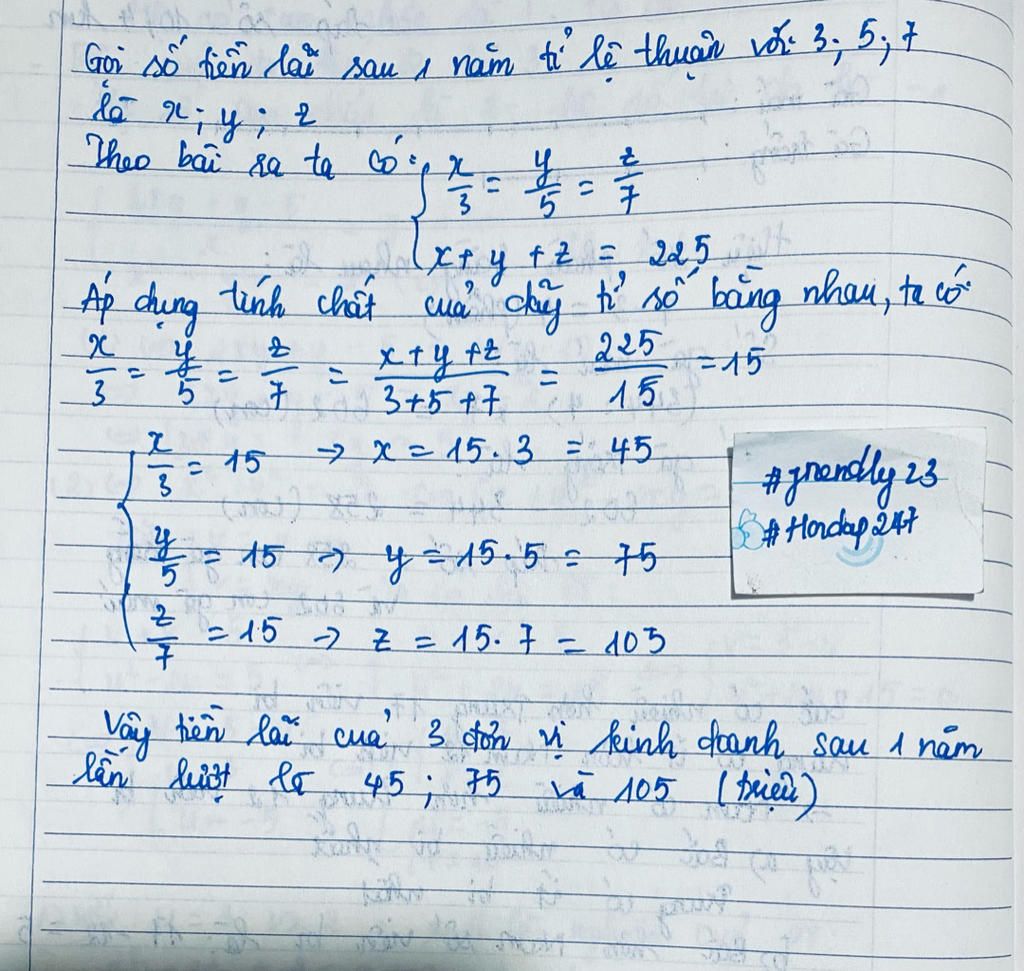 Gọi số tiền lãi sau 1 năm tỉ lệ thuận với 3; 5; 7
là x; y; z
Theo bài ra ta có: { x/3 = y/5 = z/7
x + y + z = 225
Áp dụng tính chất của dãy tỉ số bằng nhau, ta có:
x/3 = y/5 = z/7 = (x+y+z)/(3+5+7) = 225/15 = 15
{ x/3 = 15 → x = 15.3 = 45
y/5 = 15 → y = 15.5 = 75
z/7 = 15 → z = 15.7 = 105
#friendly23
#Hoidap247
Vậy tiền lãi của 3 đơn vị kinh doanh sau 1 năm
lần lượt là 45; 75 và 105 (triệu)